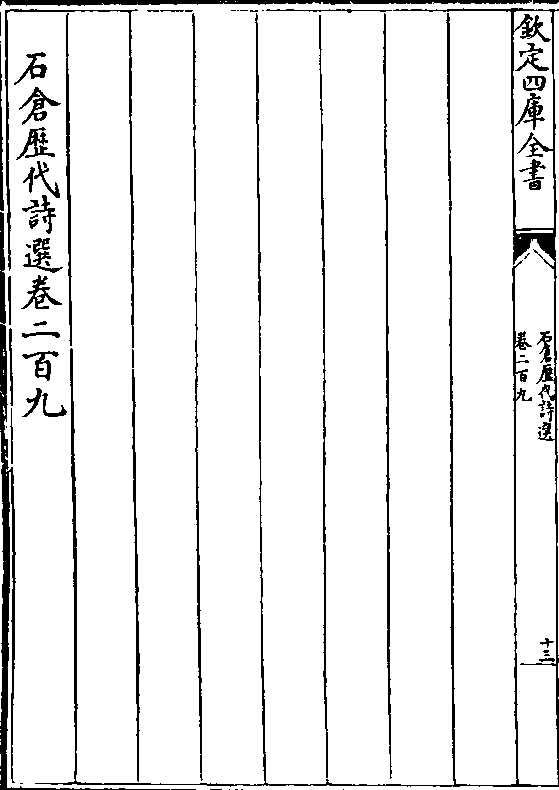 欽定四庫全書
石倉歷代詩選
卷二百九
十三
石倉歷代詩選卷二百九